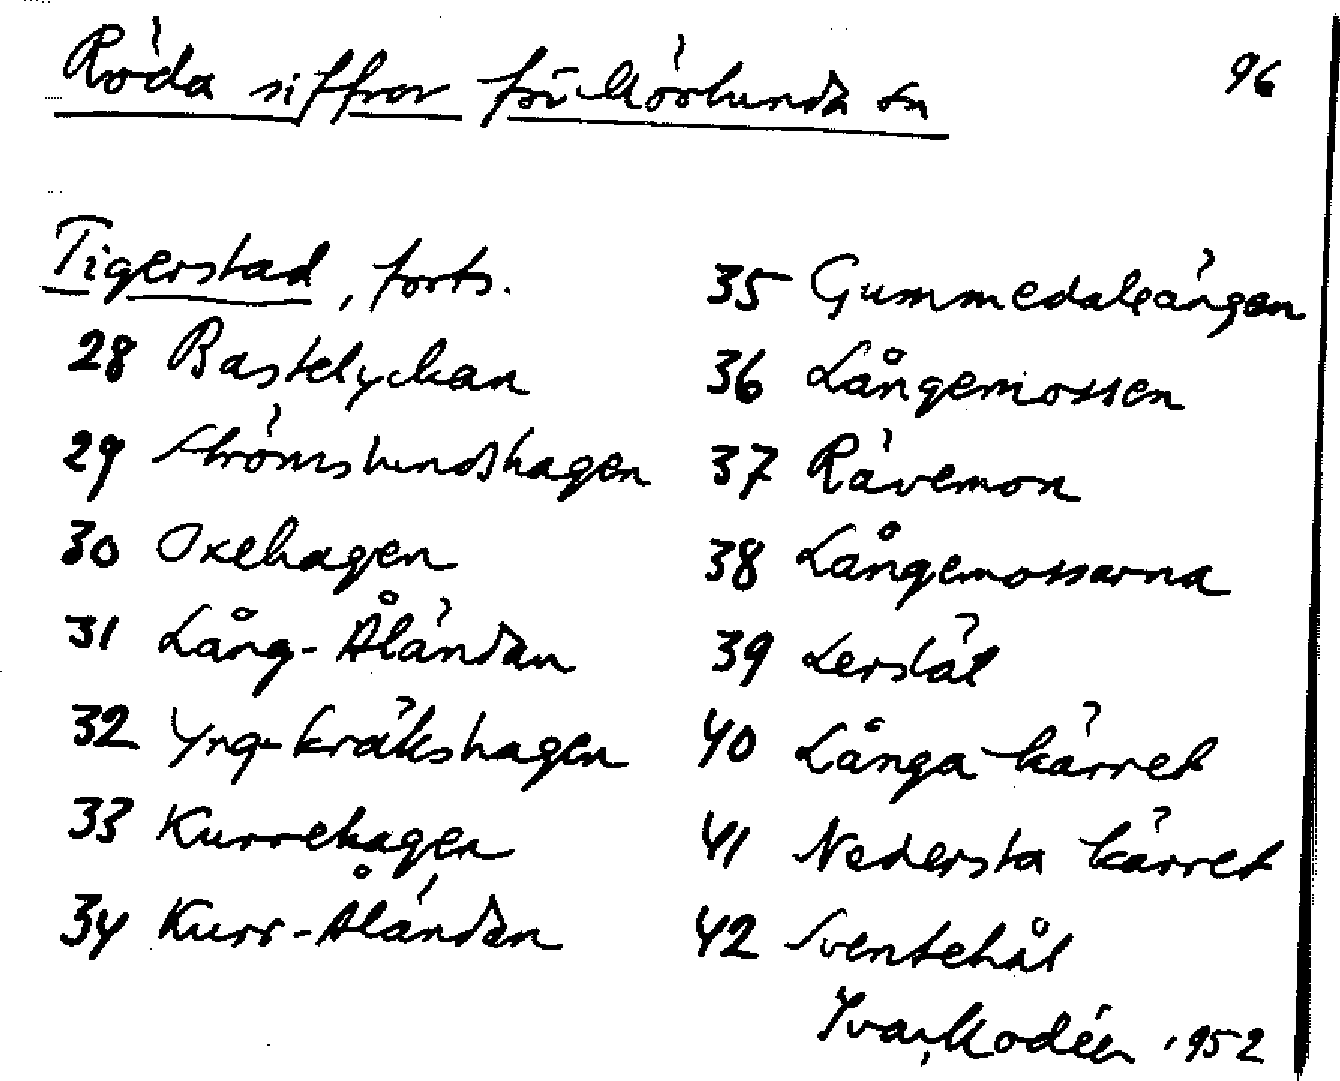 Röda siffror för Mörlunda sn
96
Tigerstad, forts.
28 Bastelyckan
29 Strömslundshagen
30 Oxehagen
31 Lång-Åländan
32 Yng-kräkshagen
33 Kurrehagen
34 Kurr-Åländan
35 Gummedaleängen
36 Långemossen
37 Rävemon
38 Långemossarna
39 Lerslät
40 Långa kärret
41 Nedersta kärret
42 Sventehål
Ivar Modéer 1952